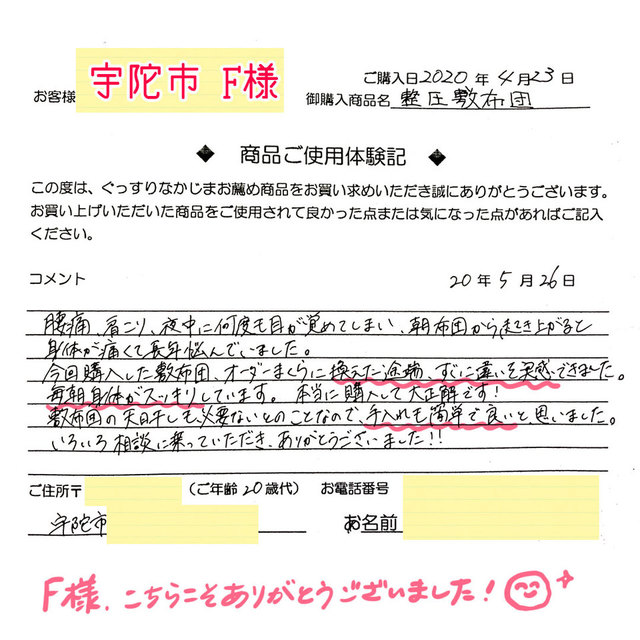 ご購入日2020年4月23日
お客様 宇陀市 F様
御購入商品名 整圧敷布団
◆ 商品ご使用体験記 ◆
この度は、ぐっすりなかじまお薦め商品をお買い求めいただき誠にありがとうございます。
お買い上げいただいた商品をご使用されて良かった点または気になった点があればご記入
ください。
コメント 20年5月26日
腰痛、肩こり、夜中に何度も目が覚めてしまい、朝布団から起き上がると
身体が痛くて長年悩んでいました。
今回購入した敷布団、オーダーまくらに換えた途端、すぐに違いを実感できました。
毎朝身体がスッキリしています。本当に購入して大正解です!
敷布団の天日干しも必要ないとのことなので、手入れも簡単で良いと思いました。
いろいろ相談に乗っていただき、ありがとうございました!!
ご住所〒 (ご年齢20歳代) お電話番号
宇陀市 お名前
F様、こちらこそありがとうございました!